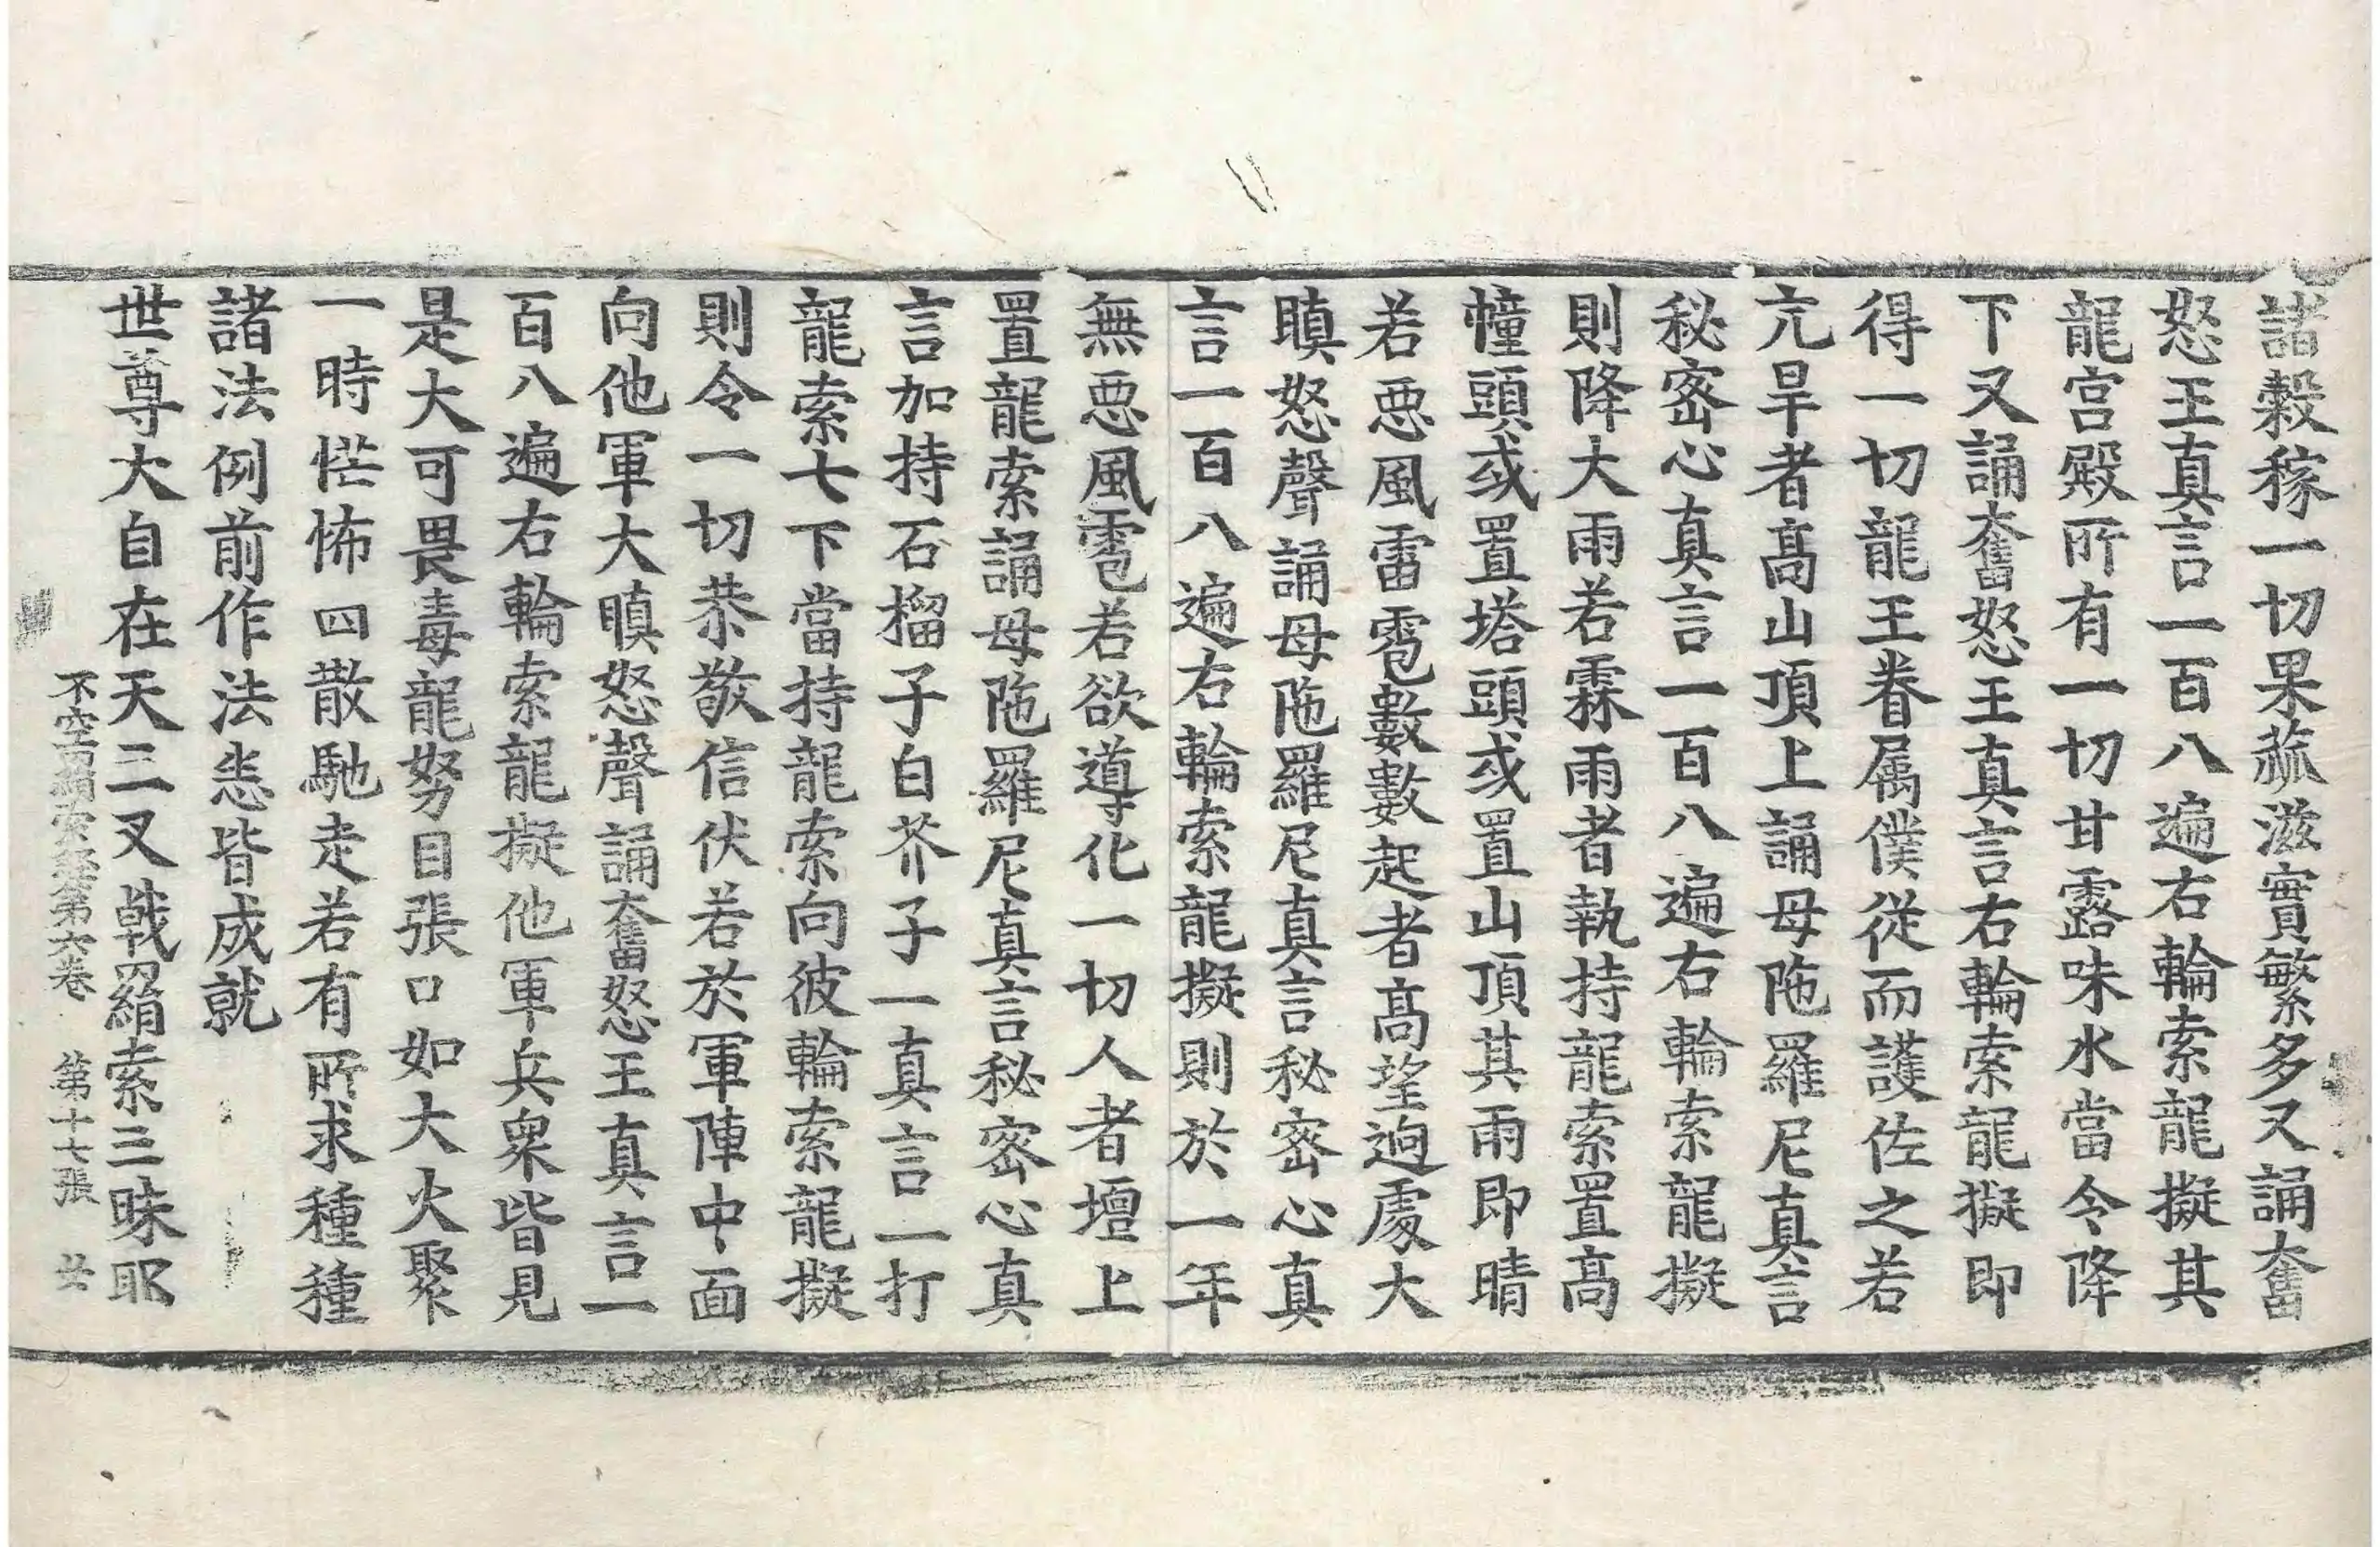 諸穀稼一切果蓏滋實繁多又誦奮
怒王真言一百八遍右輪索龍擬其
龍宮殿所有一切甘露味水當令降
下又誦奮怒王真言右輪索龍擬即
得一切龍王眷属僕從而護佐之若
亢旱者髙山頂上誦母陁羅尼真言
秘密心真言一百八遍右輪索龍擬
則降大雨若霖雨者執持龍索置髙
幢頭或置塔頭或置山頂其雨即晴
若惡風雷雹數數起者髙望逈處大
瞋怒聲誦母陁羅尼真言秘密心真
言一百八遍右輪索龍擬則於一年
無惡風雹若欲導化一切人者壇上
置龍索誦母陁羅尼真言秘密心真
言加持石榴子白芥子一真言一打
龍索七下當持龍索向彼輪索龍擬
則令一切恭敬信伏若於軍陣中面
向他軍大瞋怒聲誦奮怒王真言一
百八遍右輪索龍擬他軍兵衆皆見
是大可畏毒龍努目張口如大火聚
一時惶怖四散馳走若有所求種種
諸法例前作法悉皆成就
世尊大自在天三叉戟羂索三昧耶
不空羂索經第六卷　第十七張